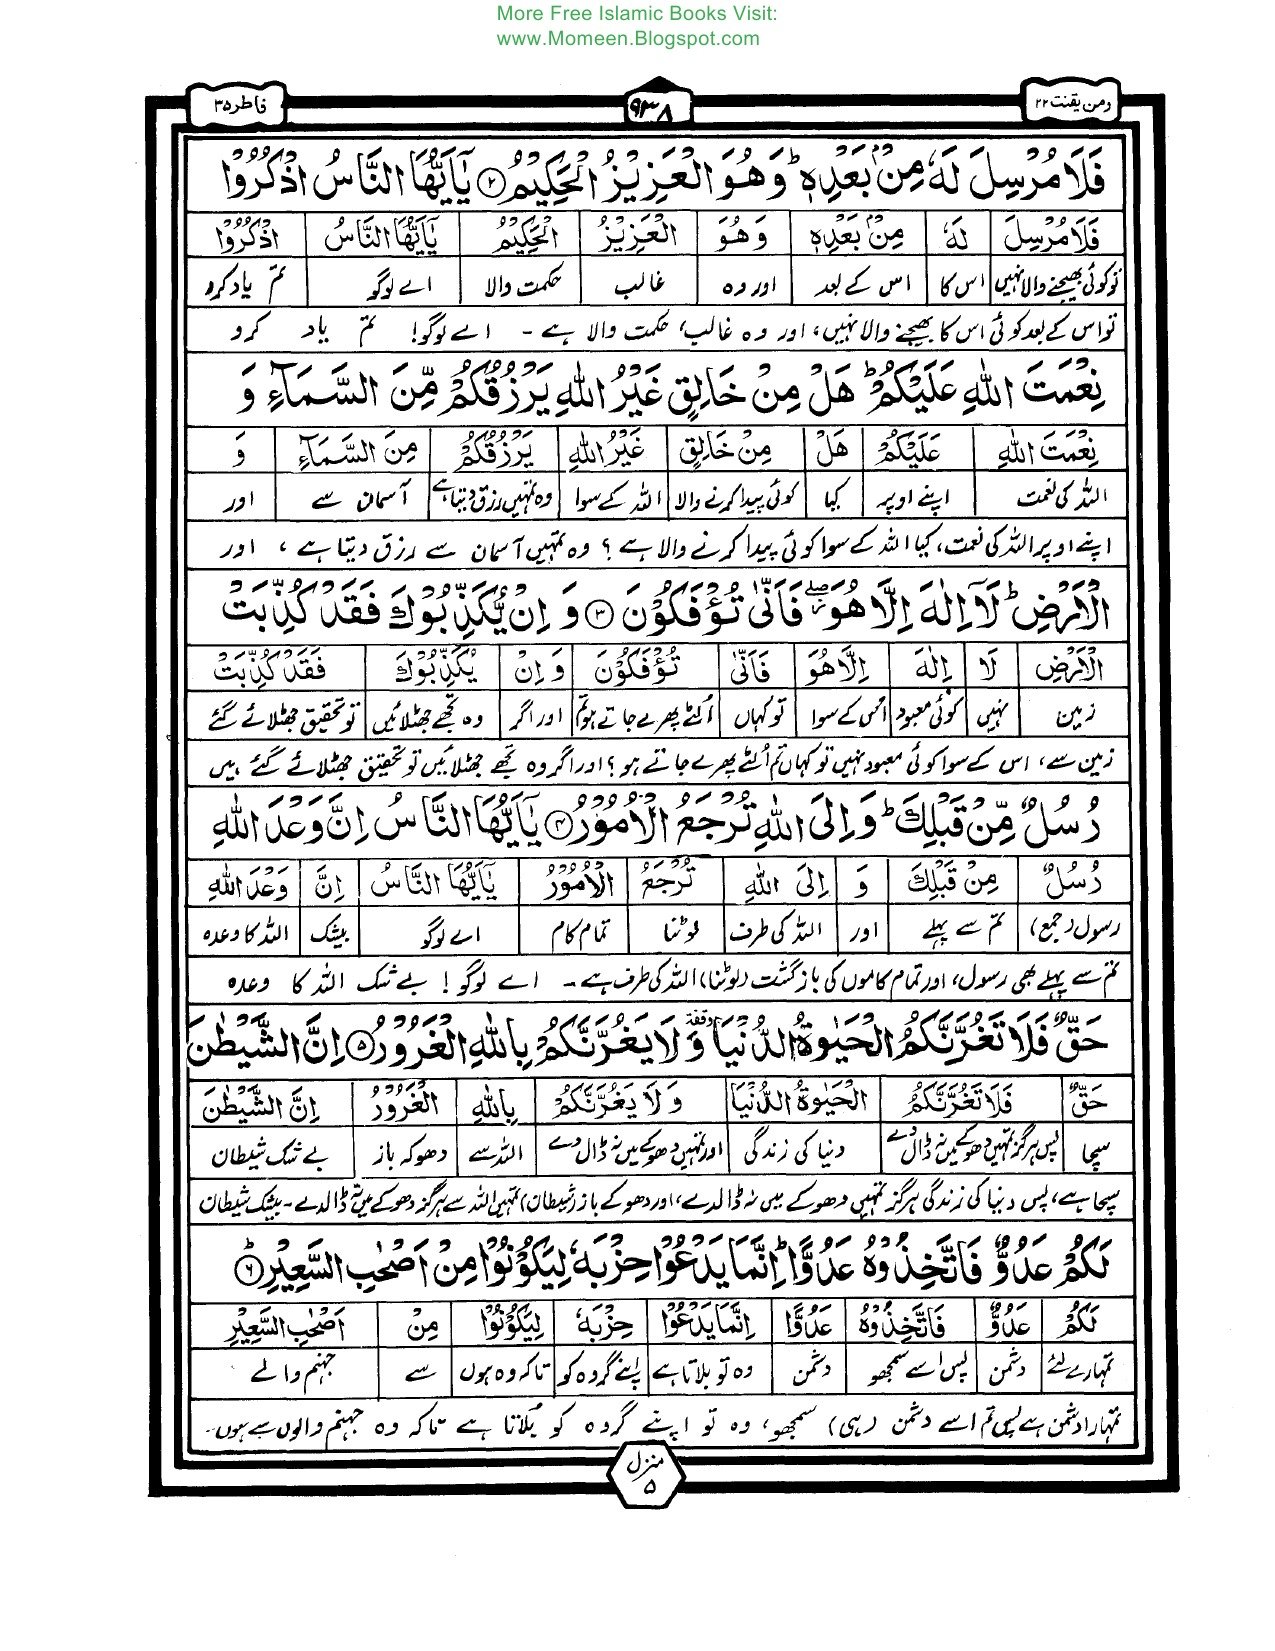 More Free Islamic Books Visit:
www.Momeen.Blogspot.com
ومن یقنت ۲۲ ۹۳۸ فاطر ۳۵
فَلَا مُرْسِلَ لَهٗ مِنْۢ بَعْدِهٖ ؕ وَهُوَ الْعَزِيْزُ الْحَكِيْمُ ۝۲ يٰۤاَيُّهَا النَّاسُ اذْكُرُوْا
فَلَا مُرْسِلَ لَهٗ مِنْۢ بَعْدِهٖ وَهُوَ الْعَزِيْزُ الْحَكِيْمُ يٰۤاَيُّهَا النَّاسُ اذْكُرُوْا
تو کوئی بھیجنے والا نہیں اس کا اس کے بعد اور وہ غالب حکمت والا اے لوگو تم یاد کرو
تو اس کے بعد کوئی اس کا بھیجنے والا نہیں، اور وہ غالب، حکمت والا ہے ۔ اے لوگو! تم یاد کرو
نِعْمَتَ اللّٰهِ عَلَيْكُمْ ؕ هَلْ مِنْ خَالِقٍ غَيْرُ اللّٰهِ يَرْزُقُكُمْ مِّنَ السَّمَآءِ وَ
نِعْمَتَ اللّٰهِ عَلَيْكُمْ هَلْ مِنْ خَالِقٍ غَيْرُ اللّٰهِ يَرْزُقُكُمْ مِنَ السَّمَآءِ وَ
اللہ کی نعمت اپنے اوپر کیا کوئی پیدا کرنے والا اللہ کے سوا وہ تمہیں رزق دیتا ہے آسمان سے اور
اپنے اوپر اللہ کی نعمت، کیا اللہ کے سوا کوئی پیدا کرنے والا ہے ؟ وہ تمہیں آسمان سے رزق دیتا ہے ، اور
الْاَرْضِ ؕ لَاۤ اِلٰهَ اِلَّا هُوَ ۖ فَاَنّٰى تُؤْفَكُوْنَ ۝۳ وَ اِنْ يُّكَذِّبُوْكَ فَقَدْ كُذِّبَتْ
الْاَرْضِ لَا اِلٰهَ اِلَّا هُوَ فَاَنّٰى تُؤْفَكُوْنَ وَ اِنْ يُّكَذِّبُوْكَ فَقَدْ كُذِّبَتْ
زمین نہیں کوئی معبود اُس کے سوا تو کہاں اُلٹے پھرے جاتے ہو تم اور اگر وہ تجھے جھٹلائیں تو تحقیق جھٹلائے گئے
زمین سے، اس کے سوا کوئی معبود نہیں تو کہاں تم اُلٹے پھرے جاتے ہو ؟ اور اگر وہ تجھے جھٹلائیں تو تحقیق جھٹلائے گئے ہیں
رُسُلٌ مِّنْ قَبْلِكَ ؕ وَ اِلَى اللّٰهِ تُرْجَعُ الْاُمُوْرُ ۝۴ يٰۤاَيُّهَا النَّاسُ اِنَّ وَعْدَ اللّٰهِ
رُسُلٌ مِنْ قَبْلِكَ وَ اِلَى اللّٰهِ تُرْجَعُ الْاُمُوْرُ يٰۤاَيُّهَا النَّاسُ اِنَّ وَعْدَ اللّٰهِ
رسول (جمع) تم سے پہلے اور اللہ کی طرف لوٹنا تمام کام اے لوگو بیشک اللہ کا وعدہ
تم سے پہلے بھی رسول، اور تمام کاموں کی بازگشت (لوٹنا) اللہ کی طرف ہے ۔ اے لوگو ! بے شک اللہ کا وعدہ
حَقٌّ فَلَا تَغُرَّنَّكُمُ الْحَيٰوةُ الدُّنْيَا ٝ وَلَا يَغُرَّنَّكُمْ بِاللّٰهِ الْغَرُوْرُ ۝۵ اِنَّ الشَّيْطٰنَ
حَقٌّ فَلَا تَغُرَّنَّكُمُ الْحَيٰوةُ الدُّنْيَا وَلَا يَغُرَّنَّكُمْ بِاللّٰهِ الْغَرُوْرُ اِنَّ الشَّيْطٰنَ
سچا پس ہرگز تمہیں دھوکے میں نہ ڈال دے دنیا کی زندگی اور تمہیں دھوکے میں نہ ڈال دے اللہ سے دھوکہ باز بے شک شیطان
سچا ہے، پس دنیا کی زندگی ہرگز تمہیں دھوکے میں نہ ڈالدے، اور دھوکے باز (شیطان) تمہیں اللہ سے ہرگز دھوکے میں نہ ڈالدے ۔ بیشک شیطان
لَكُمْ عَدُوٌّ فَاتَّخِذُوْهُ عَدُوًّا ؕ اِنَّمَا يَدْعُوْا حِزْبَهٗ لِيَكُوْنُوْا مِنْ اَصْحٰبِ السَّعِيْرِ ۝۶
لَكُمْ عَدُوٌّ فَاتَّخِذُوْهُ عَدُوًّا اِنَّمَا يَدْعُوْا حِزْبَهٗ لِيَكُوْنُوْا مِنْ اَصْحٰبِ السَّعِيْرِ
تمہارے لئے دشمن پس اسے سمجھو دشمن وہ تو بلاتا ہے اپنے گروہ کو تاکہ وہ ہوں سے جہنم والے
تمہارا دشمن ہے پس تم اسے دشمن (ہی) سمجھو، وہ تو اپنے گروہ کو بُلاتا ہے تاکہ وہ جہنم والوں سے ہوں۔
منزل ۵